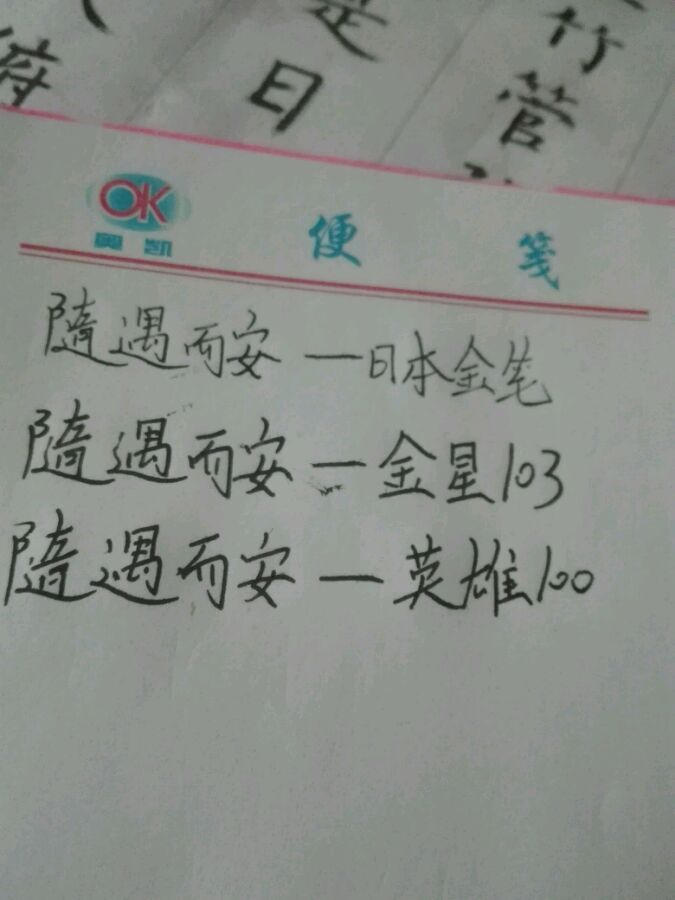 是 行
府 日 管
OK
奥凯
便 笺
隨遇而安 — 日本金笔
隨遇而安 — 金星103
隨遇而安 — 英雄100